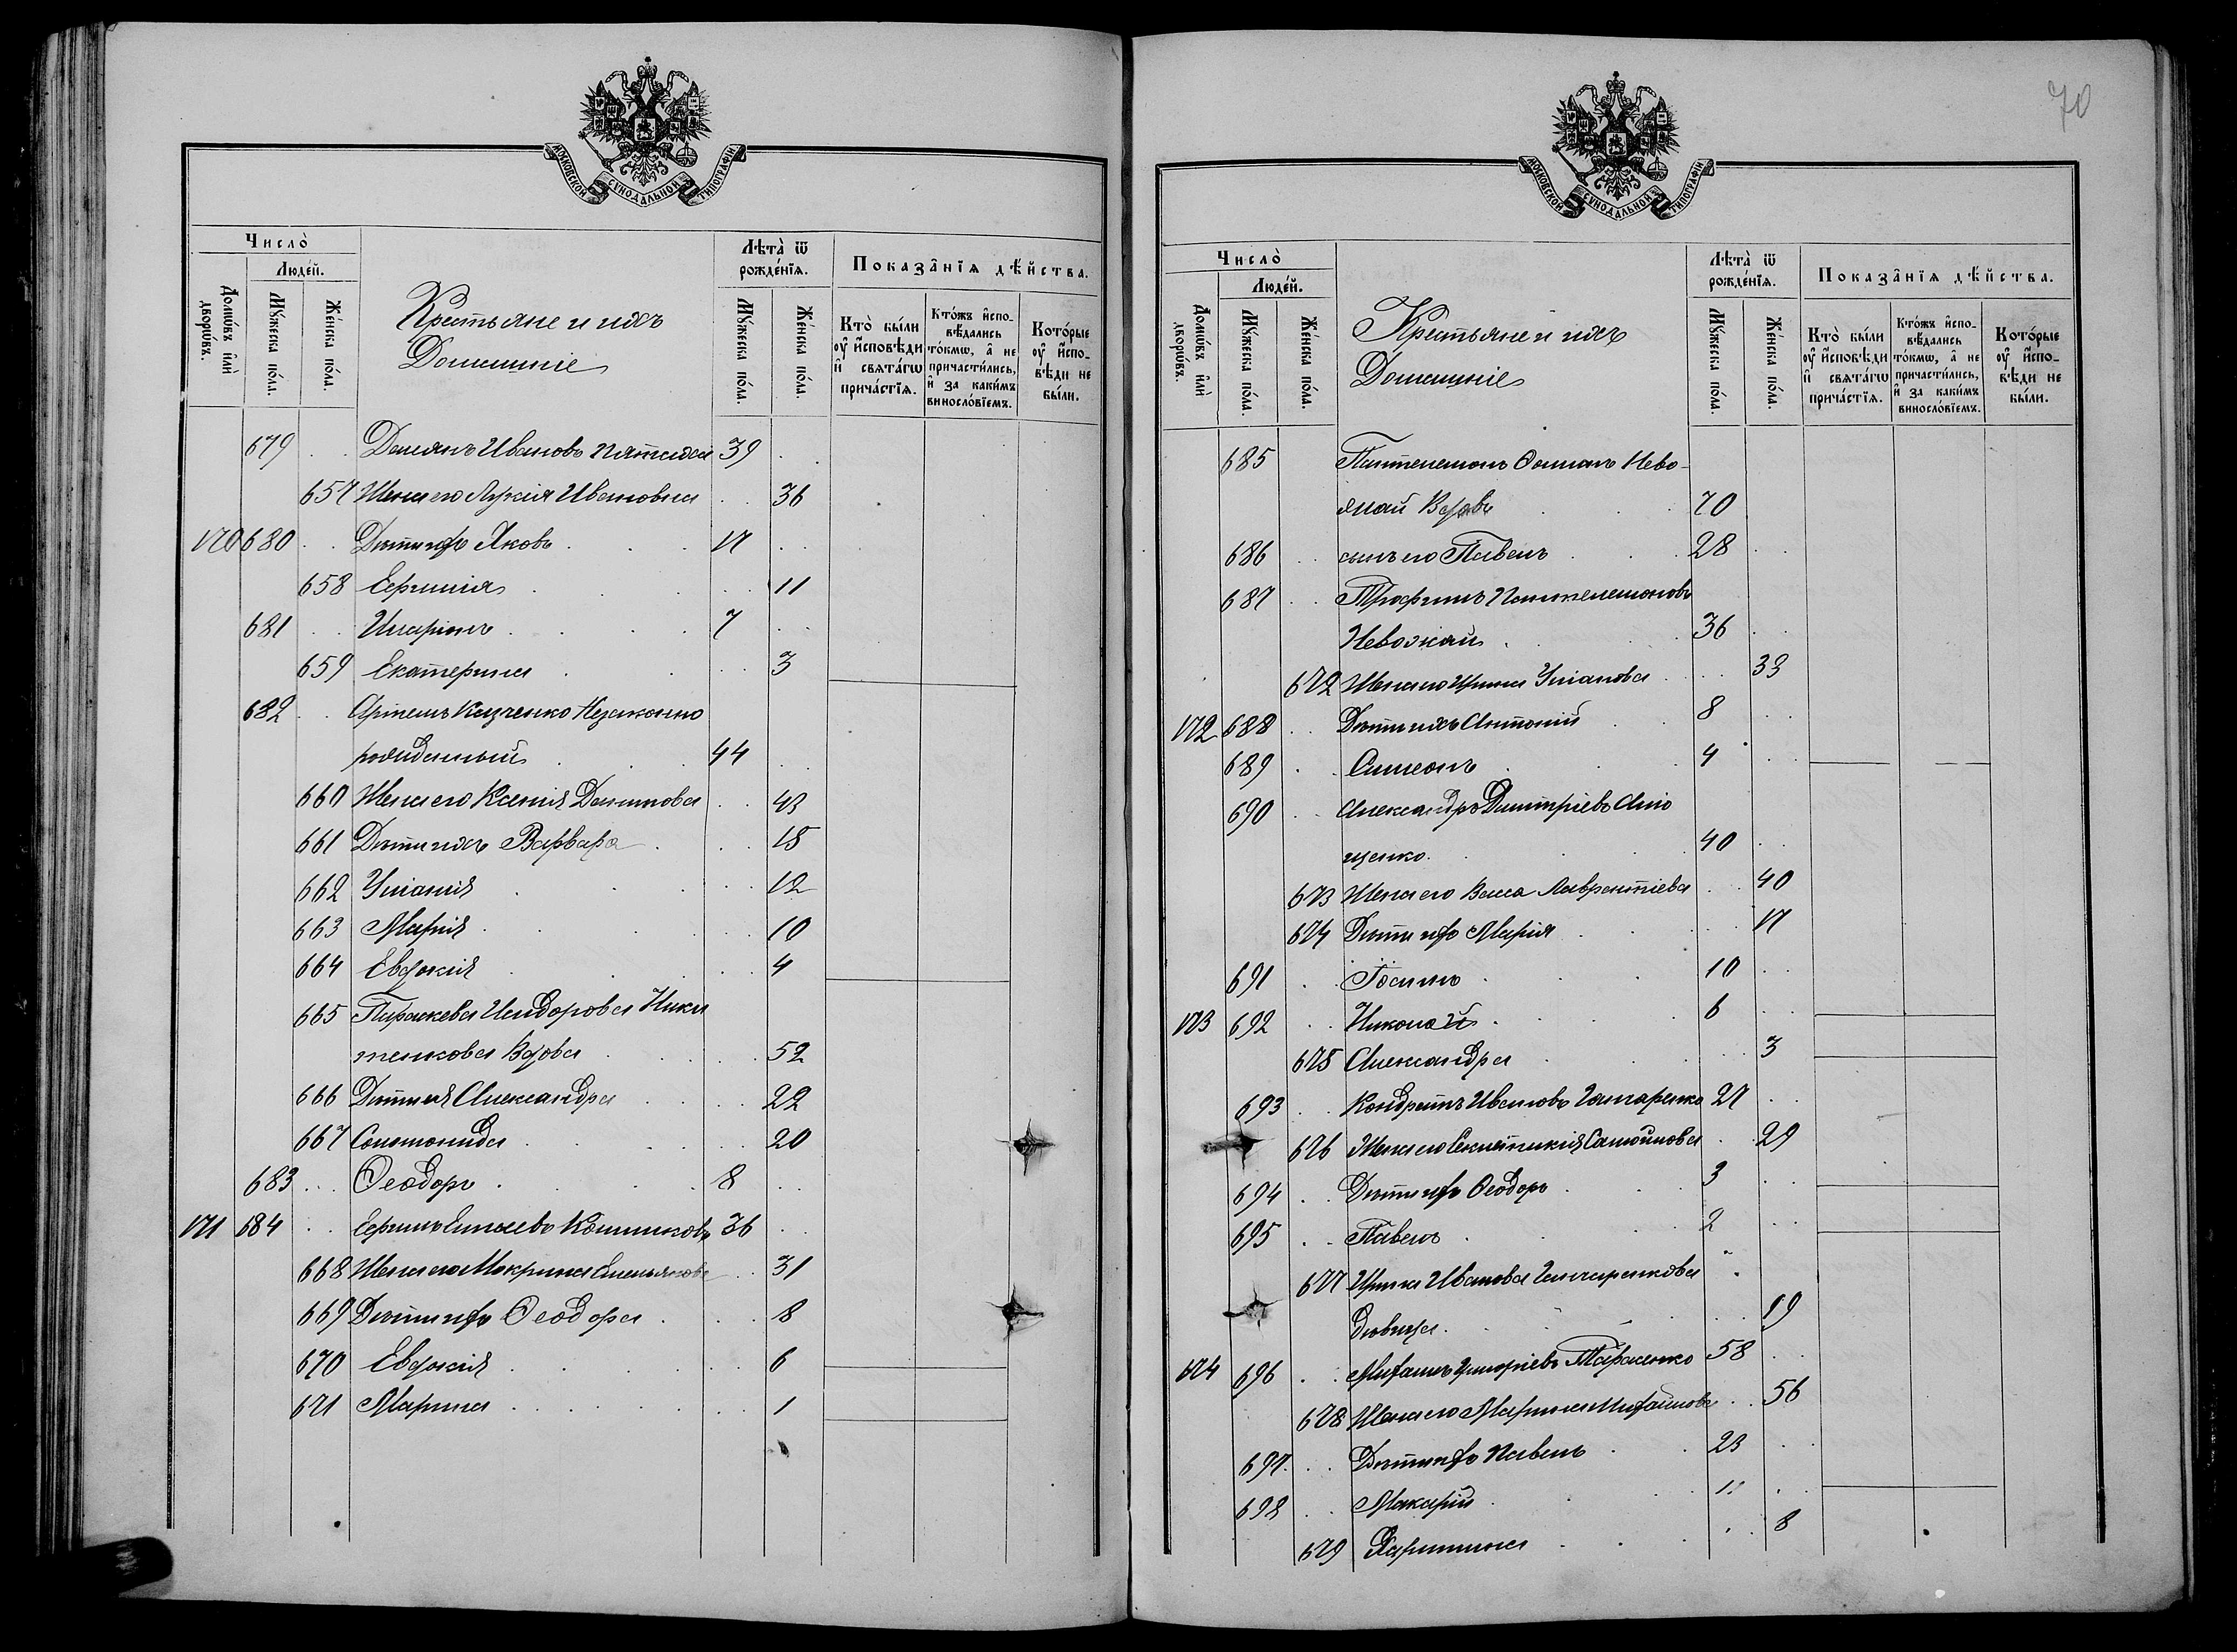 МОСКОВСКОЙ СУНОДАЛЬНОЙ ТИПОГРАФІИ
Число̀
Люде́й.
Домѡ́въ и҆лѝ дворѡ́въ.
Мꙋ́жеска по́ла.
Же́нска по́ла.
Крестьяне и ихъ
Домашніе
Лѣта̀ ѿ рожде́нїѧ.
Мꙋ́жеска по́ла.
Же́нска по́ла.
Показа̑нїѧ дѣ́йства.
Кто̀ бы́ли ᲂу҆ и҆сповѣ́ди и҆ свѧта́гѡ прича́стїѧ.
Кто́жъ и҆спо-вѣ́дались то́кмѡ, а҆ не причасти́лись, и҆ за каки́мъ винослѡ́вїемъ.
Кото́рые ᲂу҆ и҆спо-вѣ́ди не бы́ли.
679 Даміянъ Ивановъ 39
657 Жена его Лукія Ивановна 36
170 680 Дѣти ихъ Яковъ 17
658 Евфимія 11
681 Иларіонъ 7
659 Екатерина 3
682 Артемъ Казченко Незаконно
рожденный 44
660 Жена его Ксенія Данилова 43
661 Дѣти ихъ Варвара 18
662 Уліанія 12
663 Марія 10
664 Евдокія 4
665 Параскева Исидорова Ники
тенкова Вдова 52
666 Дѣти ея Александра 22
667 Соломонида 20
683 Ѳеодоръ 8
171 684 Ефимъ Елисеевъ Колтиковъ 36
668 Жена его Макрина Емельянова 31
669 Дѣти ихъ Ѳеодора 8
670 Евдокія 6
671 Марина 1
70
МОСКОВСКОЙ СУНОДАЛЬНОЙ ТИПОГРАФІИ
Число̀
Люде́й.
Домѡ́въ и҆лѝ дворѡ́въ.
Мꙋ́жеска по́ла.
Же́нска по́ла.
Крестьяне и ихъ
Домашніе
Лѣта̀ ѿ рожде́нїѧ.
Мꙋ́жеска по́ла.
Же́нска по́ла.
Показа̑нїѧ дѣ́йства.
Кто̀ бы́ли ᲂу҆ и҆сповѣ́ди и҆ свѧта́гѡ прича́стїѧ.
Кто́жъ и҆спо-вѣ́дались то́кмѡ, а҆ не причасти́лись, и҆ за каки́мъ винослѡ́вїемъ.
Кото́рые ᲂу҆ и҆спо-вѣ́ди не бы́ли.
685 Пантелемонъ Ѳоминъ Нево-
Вдовъ 70
686 сынъ его Павелъ 28
687 Трофимъ Пантелемоновъ
36
672 Жена его Ирина Уліанова 33
172 688 Дѣти ихъ Антоній 8
689 Симеонъ 4
690 Александръ Димитріевъ
щенко 40
673 Жена его Васса Лаврентіева 40
674 Дѣти ихъ Марія 17
691 Іосифъ 10
173 692 Николай 6
675 Александра 3
693 Кондратъ Ивановъ Гончаренко 27
676 Жена его Секлитикія Самойлова 29
694 Дѣти ихъ Ѳеодоръ 3
695 Павелъ 2
677 Ирина Иванова Гончаренкова
дѣвица 19
174 696 Михаилъ Григоріевъ Тарасенко 58
678 Жена его Марина Михайлова 56
697 Дѣти ихъ Павелъ 23
698 Макарій 11
679 Харитина 8